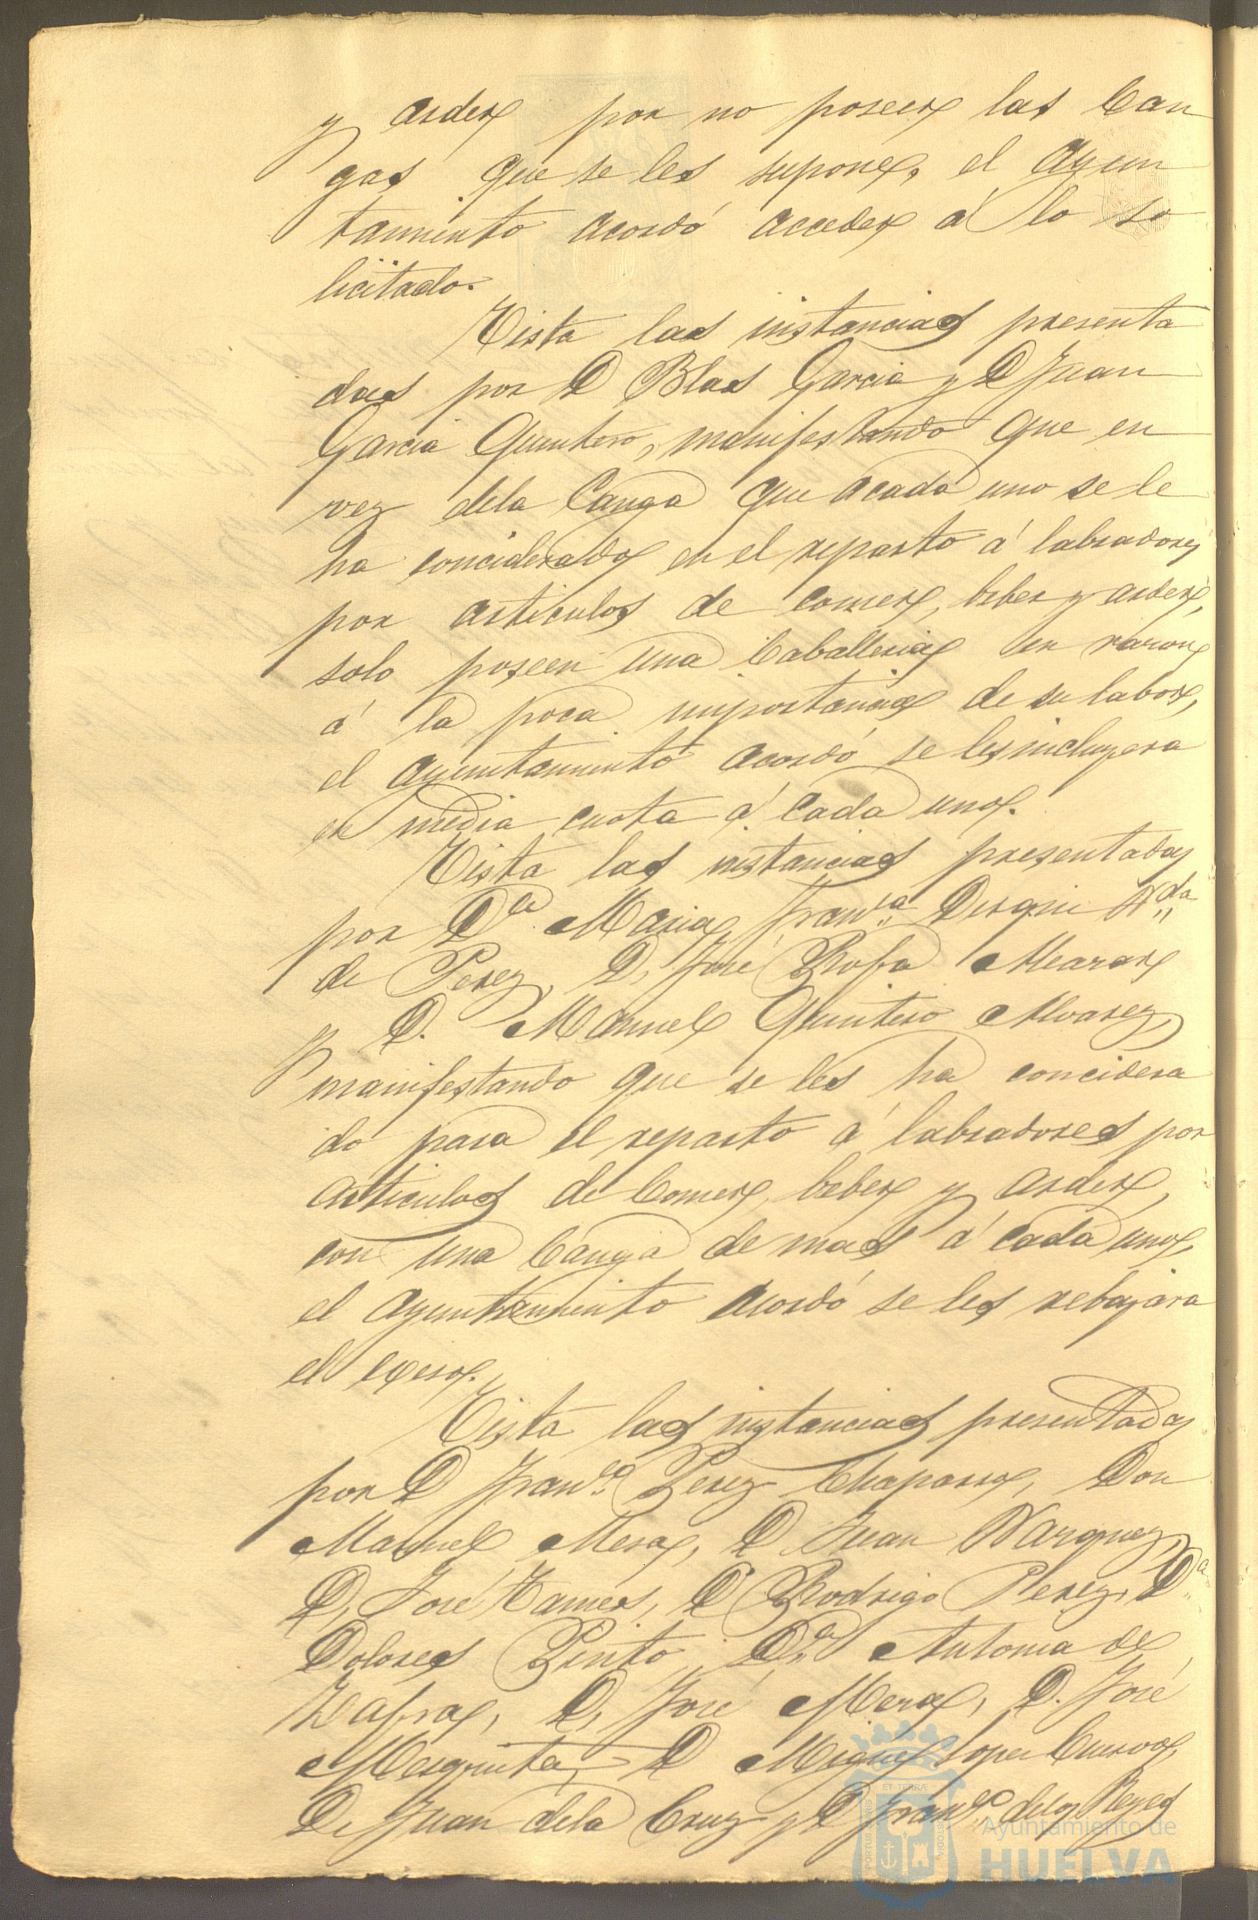 y arder por no poseer las Can
gas que se les supone, el Ayun
tamiento acordó acceder á lo so
licitado.
Vista las instancias presenta
das por D Blas Garcia y D Juan
Garcia Quintero, manifestando que en
vez dela Canga que acada uno se le
ha conciderado en el reparto á labradores
por articulos de comer, beber y arder,
solo poseen una Caballeria en razon
á la poca importancia de su labor,
el Ayuntamiento acordó se les incluyera
en media cuota á cada uno.
Vista las instancias presentadas
por Dª Maria Franᶜᵃ Vᵈᵃ
de Perez, D. José Rofa
y D. Manuel Quintero Alvarez,
manifestando que se les ha concidera
do para el reparto á labradores por
articulos de Comer, beber y arder,
con una Canga de mas á cada uno,
el Ayuntamiento acordó se les rebajara
el exeso.
Vista las instancias presentadas
por D Franᶜᵒ Perez Chaparro, Don
Manuel Mesa, D Juan Varquez,
D, José D Rodrigo Perez, Dª
Dolores Pinto, Dª Antonia de
Zafra, D, José Mera, D. José
Mezquita, D Miguel Lopez Cuervo,
D. Juan dela Cruz y D Franᶜᵒ delos Reyes
ET TERRÆ
Ayuntamiento de
HUELVA